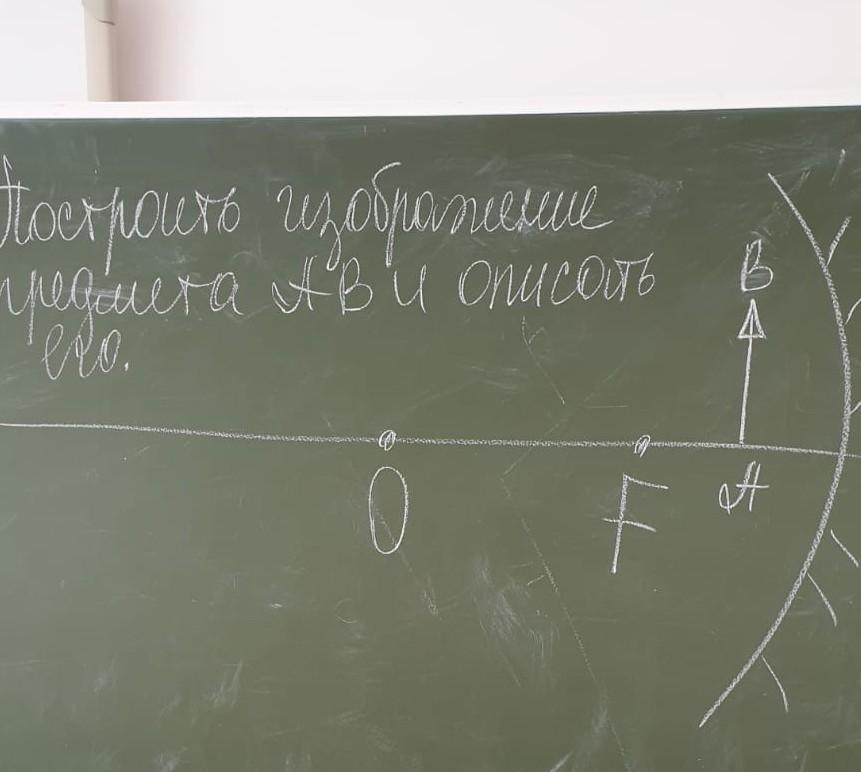 Построить изображение
предмета АВ и описать
его.
В
О
F
А